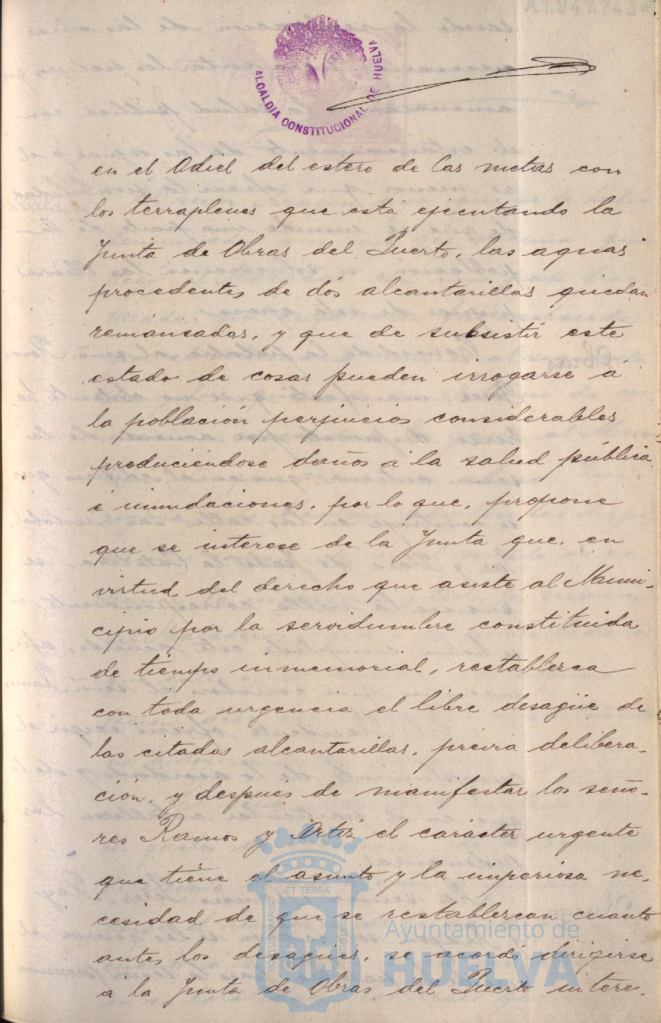 A1.947.743
ALCALDIA CONSTITUCIONAL DE HUELVA
en el Odiel del estero de las metas con
los terraplenes que está ejecutando la
Junta de Obras del Puerto, las aguas
procedentes de dos alcantarillas quedan
remansadas, y que de subsistir este
estado de cosas pueden irrogarse á
la población perjuicios considerables
produciéndose daños á la salud pública
é inundaciones, por lo que, propone
que se interese de la Junta que, en
virtud del derecho que asiste al Muni-
cipio por la servidumbre constituida
de tiempo inmemorial, restablezca
con toda urgencia el libre desagüe de
las citadas alcantarillas, previa delibera-
ción, y después de manifestar los seño-
res Ramos y Ortiz el carácter urgente
que tiene el asunto y la imperiosa ne-
cesidad de que se restablezcan cuanto
antes los desagües, se acordó dirigirse
a la Junta de Obras del Puerto intere-
Ayuntamiento de
HUELVA